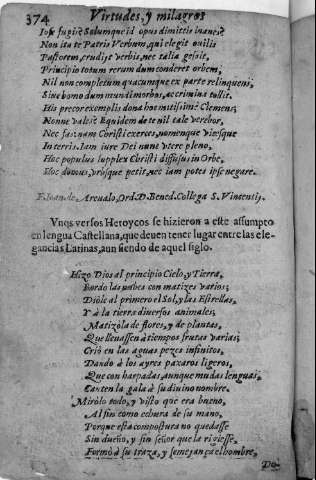 374 Virtudes, y milagros
Ipse fugis? Solumque id opus dimittis inane?
Non ita te Patris Verbum, qui elegit ouilis
Pastorem, erudijt verbis, nec talia gessit,
Principio totum rerum dum conderet orbem,
Nil non completum quacumque ex parte relinquens,
Siue homo dum mundi morbos, ac crimina tollit.
His precor exemplis dona hoc mitissime Clemens,
Nonne vales? Equidem de te nil tale verebor,
Nec fas: nam Christi exerces, nomenque vicesque
In terris. Iam iure Dei nunc vtere pleno,
Hoc populus supplex Christi diffusus in Orbe,
Hoc domus, vrbsque petit, nec iam potes ipse negare.
F. Ioan de Areualo, Ord. D. Bened. Collega S. Vincentij.
Vnos versos Heroycos se hizieron a este assumpto
en lengua Castellana, que deuen tener lugar entre las ele-
gancias Latinas, aun siendo de aquel siglo.
Hizo Dios al principio Cielo, y Tierra,
Bordo las nubes con matizes varios;
Diòle al primero el Sol, y las Estrellas,
Y à la tierra diuersos animales;
Matizola de flores, y de plantas,
Que lleuassen à tiempos frutas varias;
Criò en las aguas pezes infinitos,
Dando à los ayres paxaros ligeros,
Que con harpadas, aunque mudas lenguas,
Canten la gala à su diuino nombre.
Miròlo todo, y visto que era bueno,
Al fin como echura de su mano,
Porque esta compostura no quedasse
Sin dueño, y sin señor que la rigiesse,
Formò à su traza, y semejança el hombre,
Do-